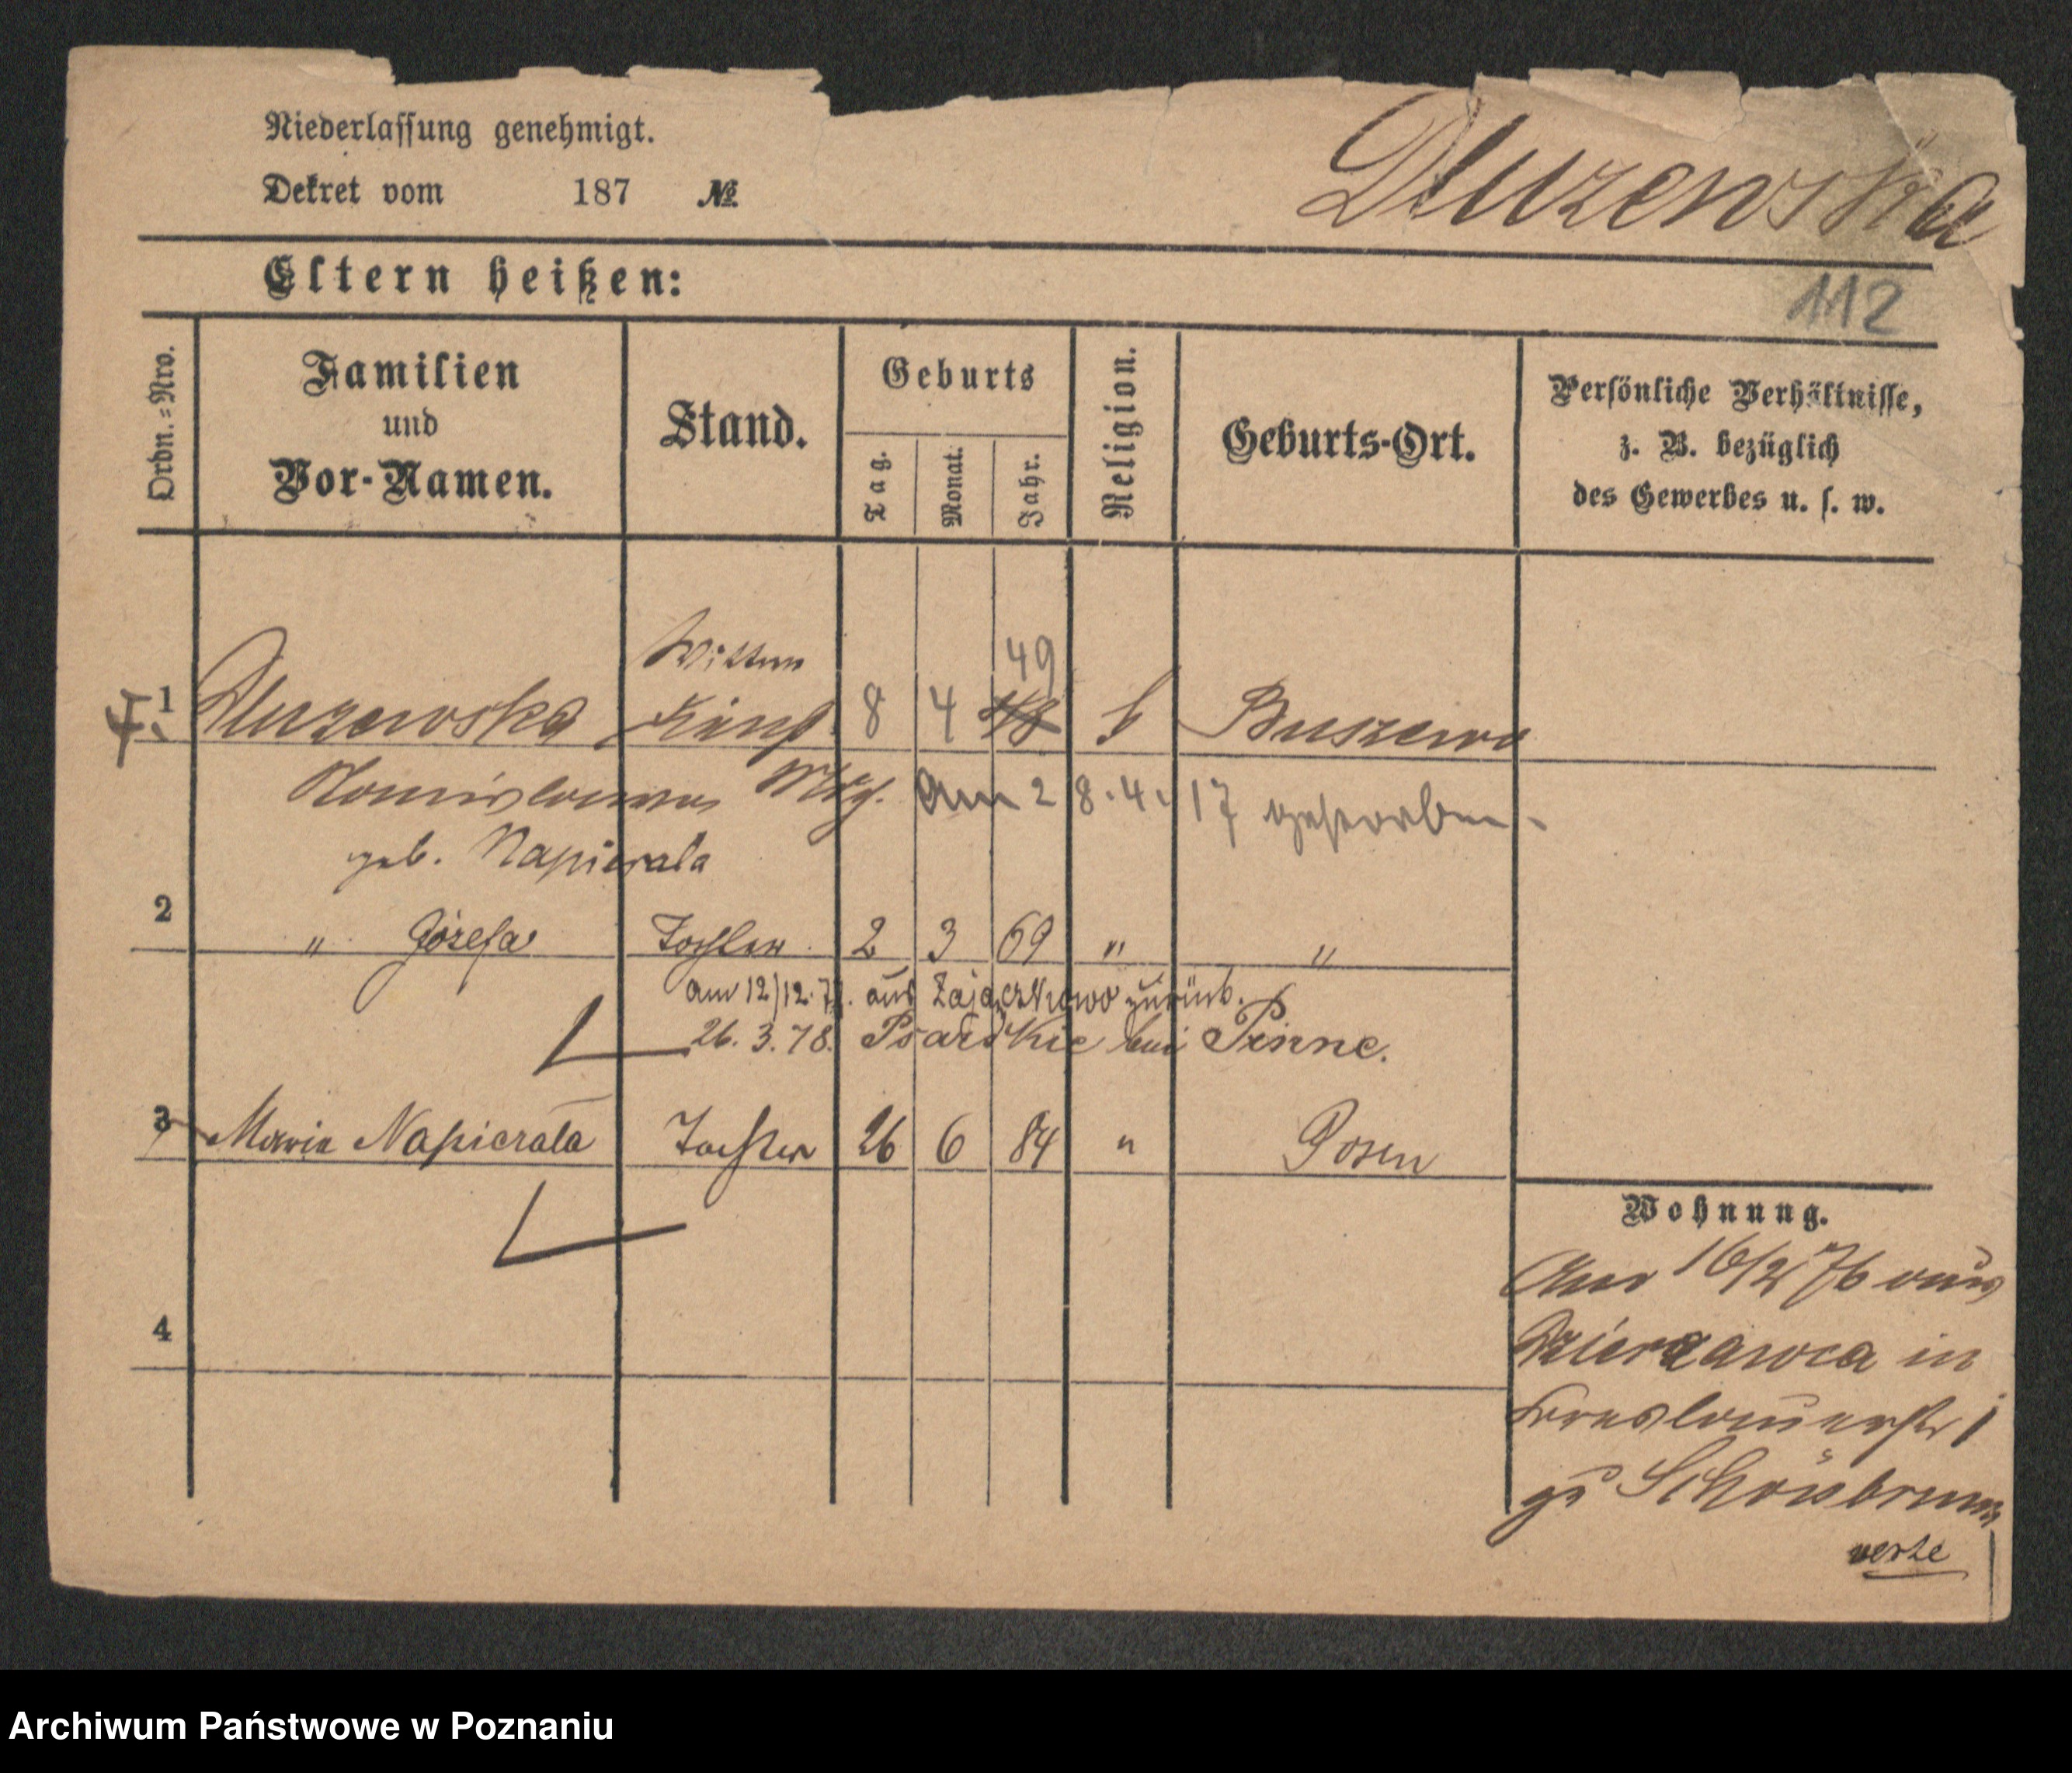 Niederlassung genehmigt.
Dekret vom 187 №
Dluzewska
Eltern heißen:
112
Ordn.=Nro.
Familien
und
Vor-Namen.
Stand.
Geburts
Tag.
Monat.
Jahr.
Religion.
Geburts-Ort.
Persönliche Verhältnisse,
z. B. bezüglich
des Gewerbes u. s. w.
Wittwe
49
1 Dluzewska 8 4 48 k Buszewo
Stanislawa am 28.4.17 gestorben.
geb. Napierala
2 " Józefa Tochter 2 3 69 " "
am 12/12.77. aus Zajączkowo zurück.
26.3.78. Psarskie bei Pinne.
3 Maria Napierala Tochter 26 6 84 " Posen
4
Wohnung.
Am 16/2 76 aus
in
Breslauerstr
zu Schönbrunn
verte
Archiwum Państwowe w Poznaniu